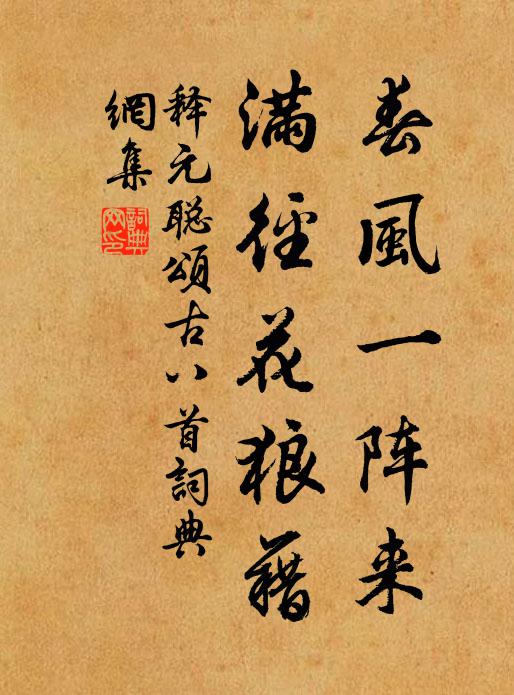 春風一阵来
满徑花狼藉
释元聪颂古八首詞典
網集
詞典
网印